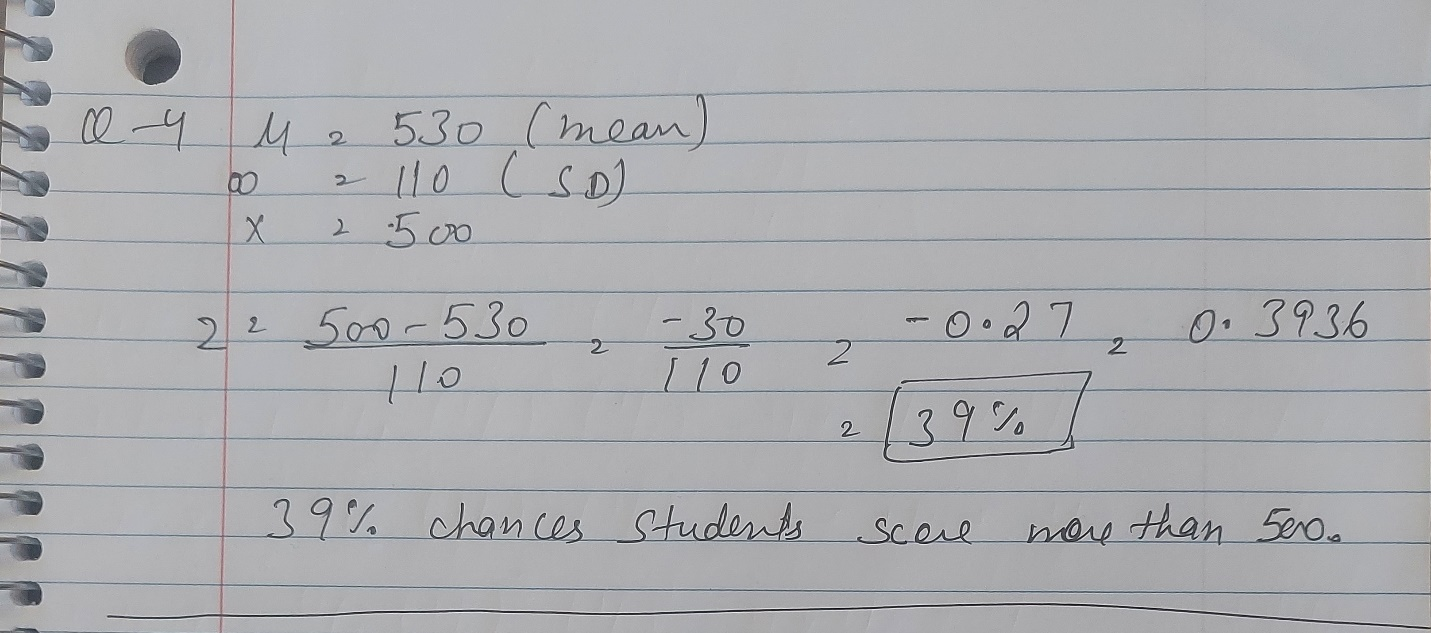 Q-4 μ = 530 (mean)
σ = 110 (SD)
x = 500
z = 500-530 / 110 = -30 / 110 = -0.27 = 0.3936
= 39%
39% chances students score more than 500.